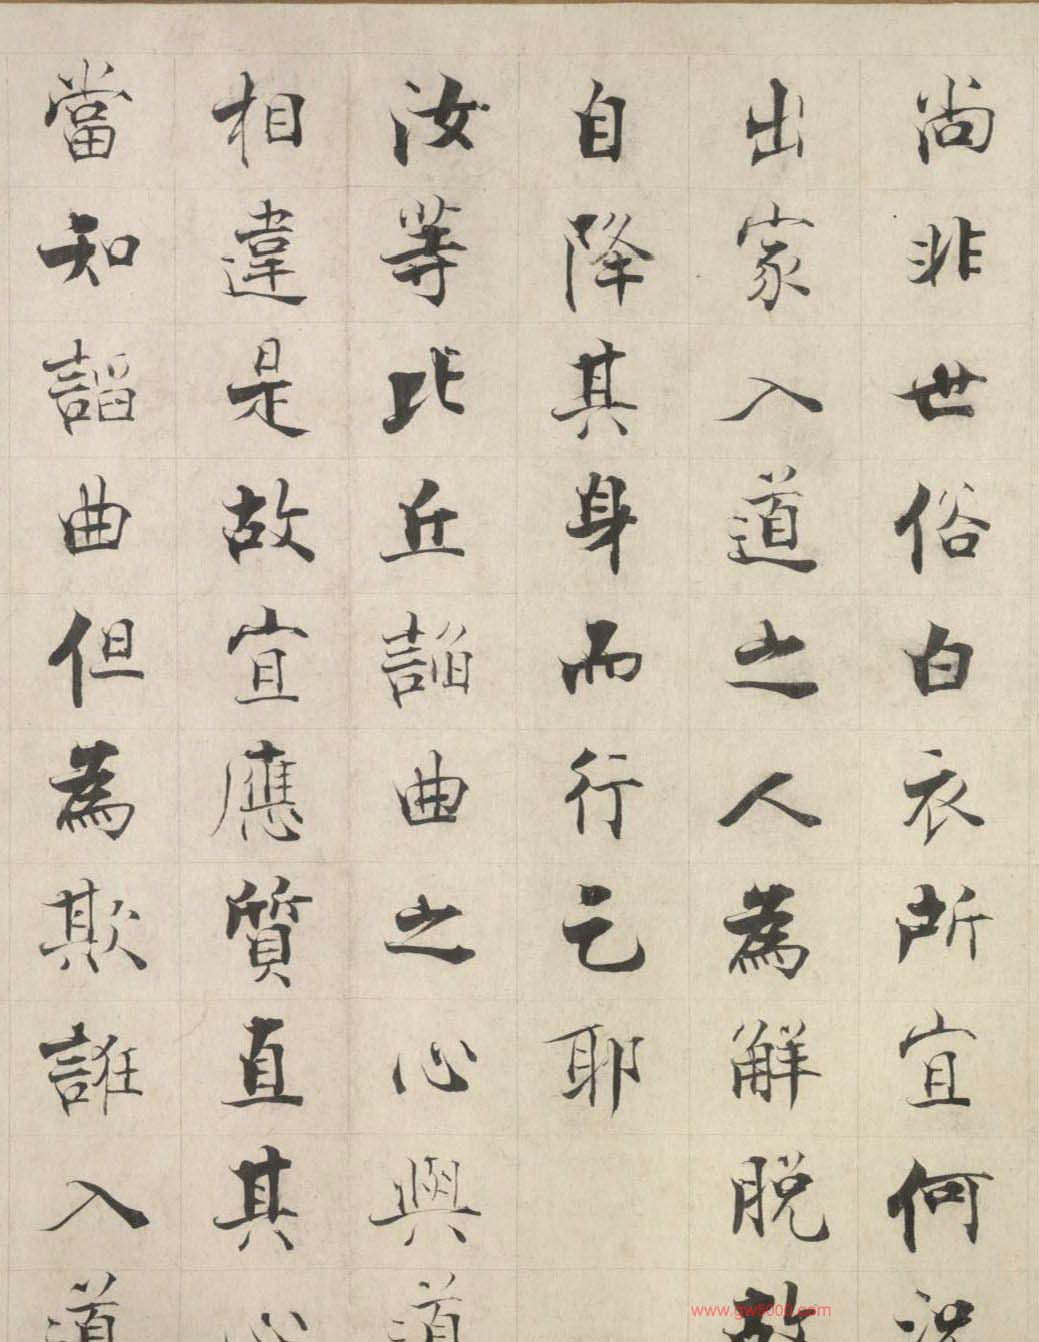 尚非世俗白衣所宜何況
出家入道之人為解脫故
自降其身而行乞耶
汝等比丘諂曲之心與道
相違是故宜應質直其心
當知諂曲但為欺誑入道
www.gw5000.com